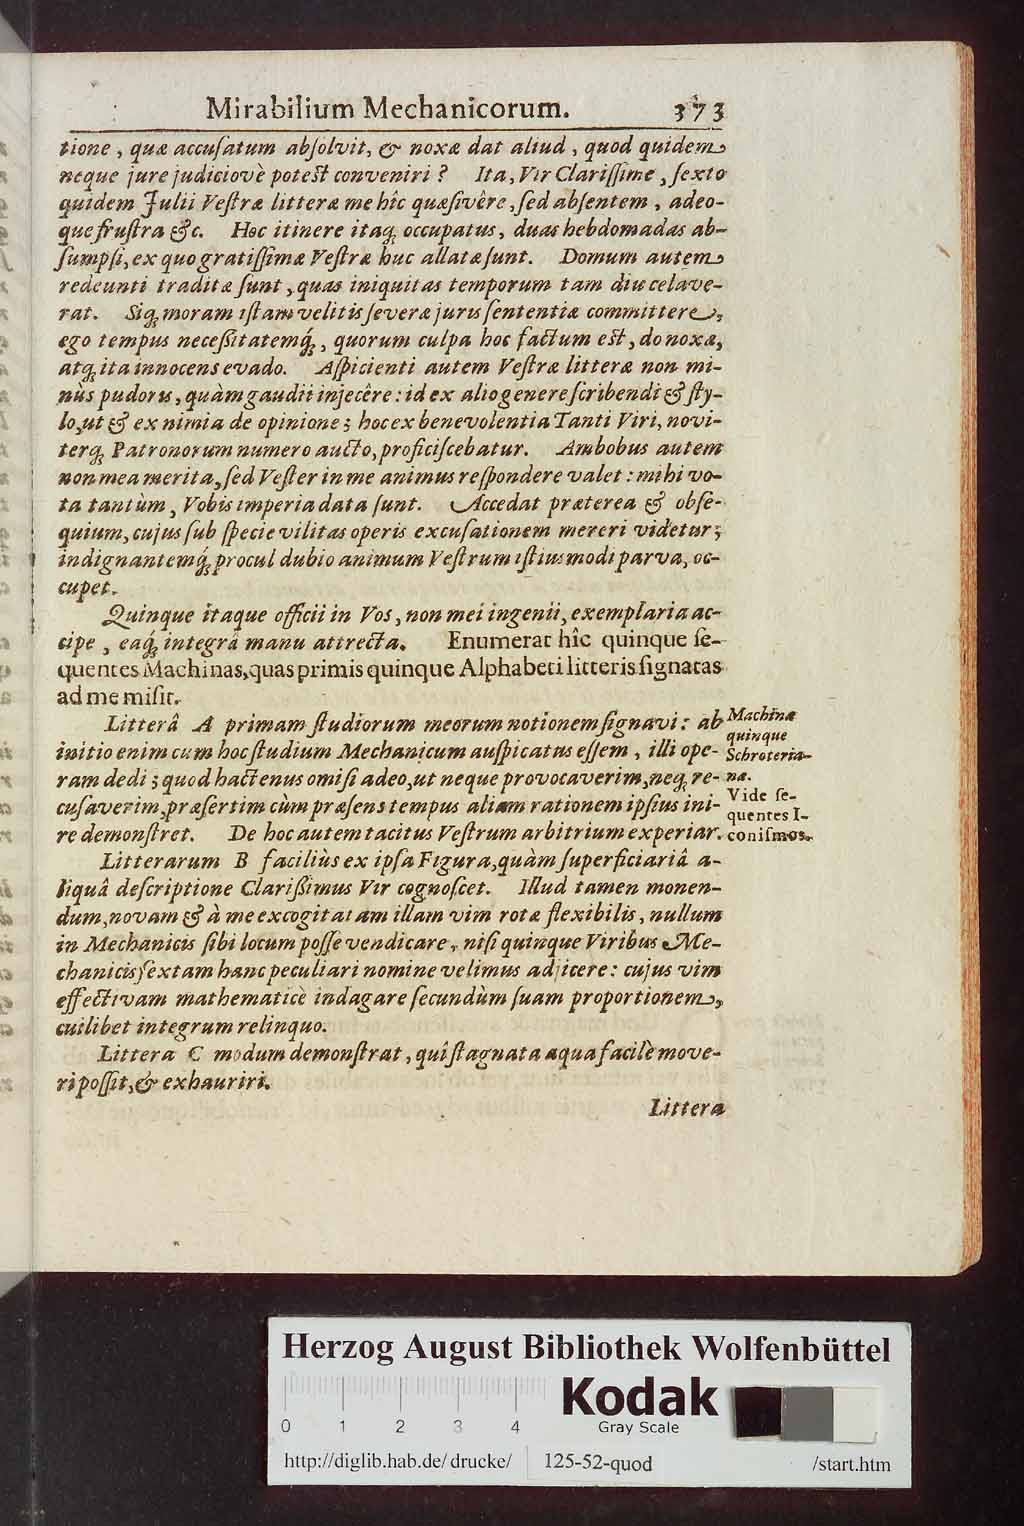 Mirabilium Mechanicorum. 373
tione, quæ accuſatum abſolvit, & noxæ dat aliud, quod quidem
neque jure judiciovè poteſt conveniri? Ita, Vir Clariſſime, ſexto
quidem Julii Veſtræ litteræ me hîc quæſivêre, ſed abſentem, adeo-
que fruſtra &c. Hoc itinere itaq; occupatus, duas hebdomadas ab-
ſumpſi, ex quo gratiſſimæ Veſtræ huc allatæ ſunt. Domum autem
redeunti traditæ ſunt, quas iniquitas temporum tam diu celave-
rat. Siq; moram iſtam velitis ſeveræ juris ſententiæ committere,
ego tempus neceſſitatemq́;, quorum culpa hoc factum eſt, do noxæ,
atq; ita innocens evado. Aſpicienti autem Veſtræ litteræ non mi-
nùs pudoris, quàm gaudii injecêre: id ex alio genere ſcribendi & ſty-
lo, ut & ex nimia de opinione; hoc ex benevolentia Tanti Viri, novi-
terq; Patronorum numero aucto, proficiſcebatur. Ambobus autem
non mea merita, ſed Veſter in me animus reſpondere valet: mihi vo-
ta tantùm, Vobis imperia data ſunt. Accedat præterea & obſe-
quium, cujus ſub ſpecie vilitas operis excuſationem mereri videtur;
indignantemq́; procul dubio animum Veſtrum iſtiusmodi parva, oc-
cupet.
Quinque itaque officii in Vos, non mei ingenii, exemplaria ac-
cipe, eaq́; integrâ manu attrecta. Enumerat hîc quinque ſe-
quentes Machinas, quas primis quinque Alphabeti litteris ſignatas
ad me miſit.
Litterâ A primam ſtudiorum meorum notionem ſignavi: ab
initio enim cum hoc ſtudium Mechanicum auſpicatus eſſem, illi ope-
ram dedi; quod hactenus omiſi adeo, ut neque provocaverim, neq; re-
cuſaverim, præſertim cùm præſens tempus aliam rationem ipſius ini-
re demonſtret. De hoc autem tacitus Veſtrum arbitrium experiar.
Machinæ
quinque
Schroteria-
næ.
Vide ſe-
quentes I-
coniſmos.
Litterarum B faciliùs ex ipſa Figura, quàm ſuperficiariâ a-
liquâ deſcriptione Clariſſimus Vir cognoſcet. Illud tamen monen-
dum, novam & à me excogitatam illam vim rotæ flexibilis, nullum
in Mechanicis ſibi locum poſſe vendicare, niſi quinque Viribus Me-
chanicis ſextam hanc peculiari nomine velimus adjicere: cujus vim
effectivam mathematicè indagare ſecundùm ſuam proportionem,
cuilibet integrum relinquo.
Littera C modum demonſtrat, quî ſtagnata aqua facilè move-
ri poſſit, & exhauriri.
Littera
Herzog August Bibliothek Wolfenbüttel
0 1 2 3 4
Kodak
Gray Scale
http://diglib.hab.de/drucke/ 125-52-quod /start.htm